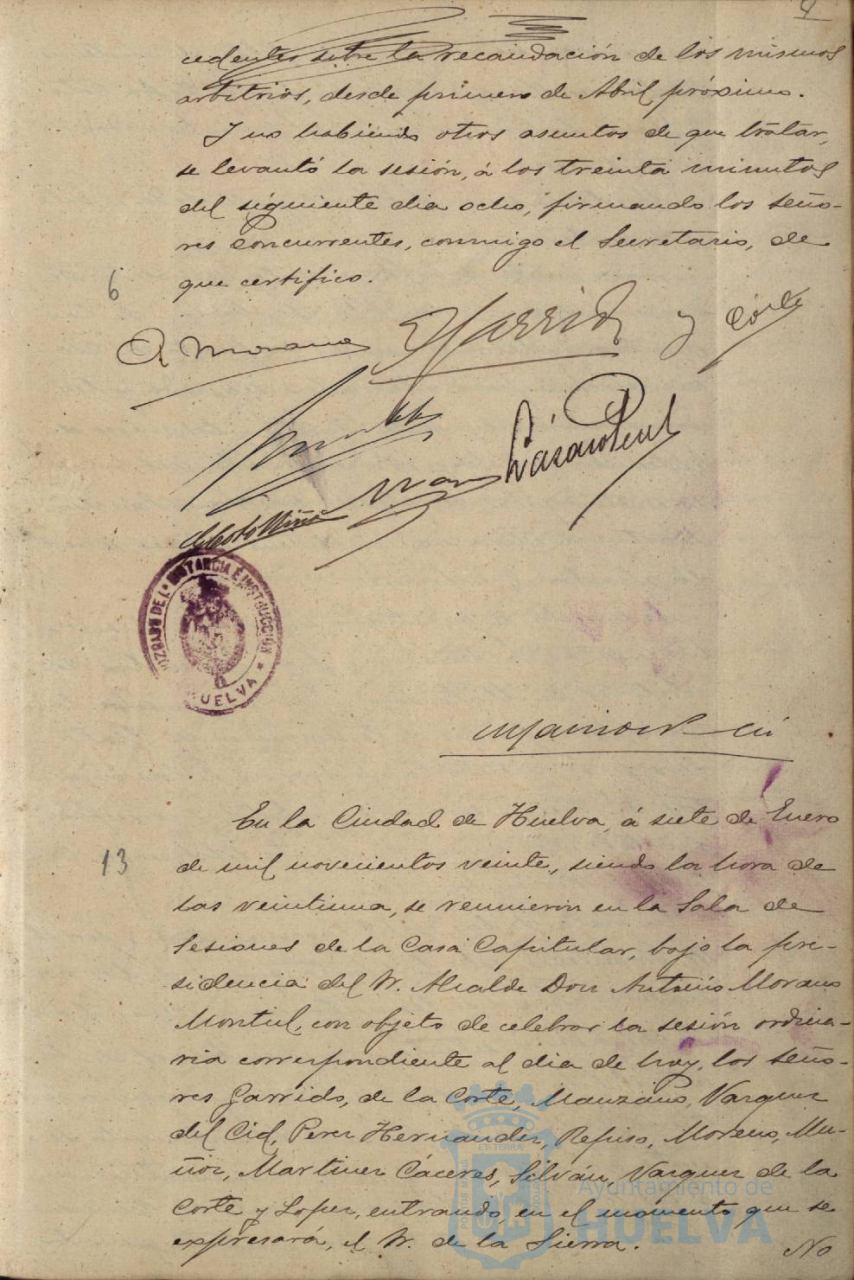 4
cedentes sobre la recaudación de los mismos
arbitrios, desde primero de Abril próximo.
Y no habiendo otros asuntos de que tratar,
se levantó la sesión, á los treinta minutos
del siguiente dia ocho, firmando los seño-
res concurrentes, conmigo el Secretario, de
que certifico.
6
A Morano Garrido y Corte
JUZGADO DE 1ª INSTANCIA É INSTRUCCIÓN
HUELVA
13
En la Ciudad de Huelva, á siete de Enero
de mil novecientos veinte, siendo la hora de
las veintiuna, se reunieron en la Sala de
Sesiones de la Casa Capitular, bajo la pre-
sidencia del Sr. Alcalde Don Antonio Morano
Montiel, con objeto de celebrar la sesión ordina-
ria correspondiente al dia de hoy, los seño-
res Garrido, de la Corte, Manzano, Vazquez
del Cid, Perez Hernandez, Repiso, Moreno, Mu-
ñoz, Martinez Cáceres, Silván, Vazquez de la
Corte y Lopez, entrando, en el momento que se
expresará, el Sr. de la Sierra.
No
Ayuntamiento de
HUELVA